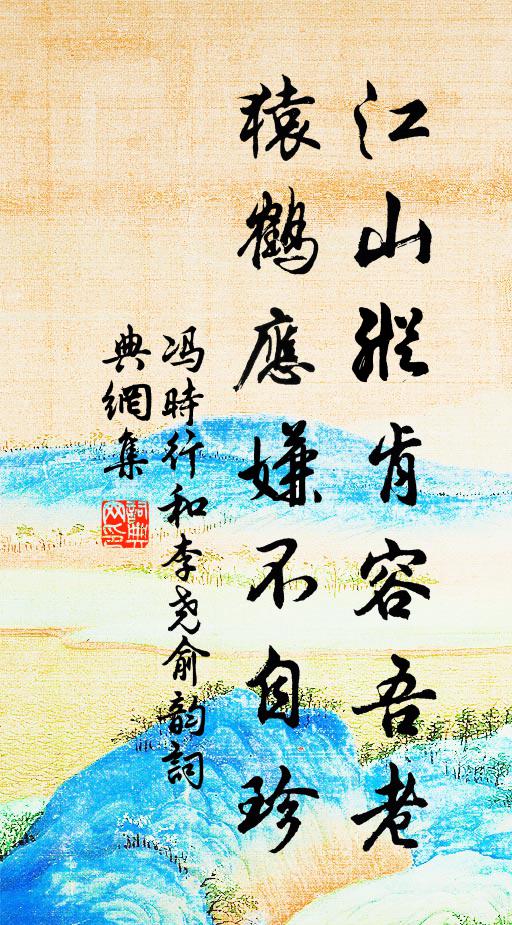 江山縱肯容吾老
猿鶴應嫌不自珍
冯時行和李尧俞韵詞
典網集
詞典